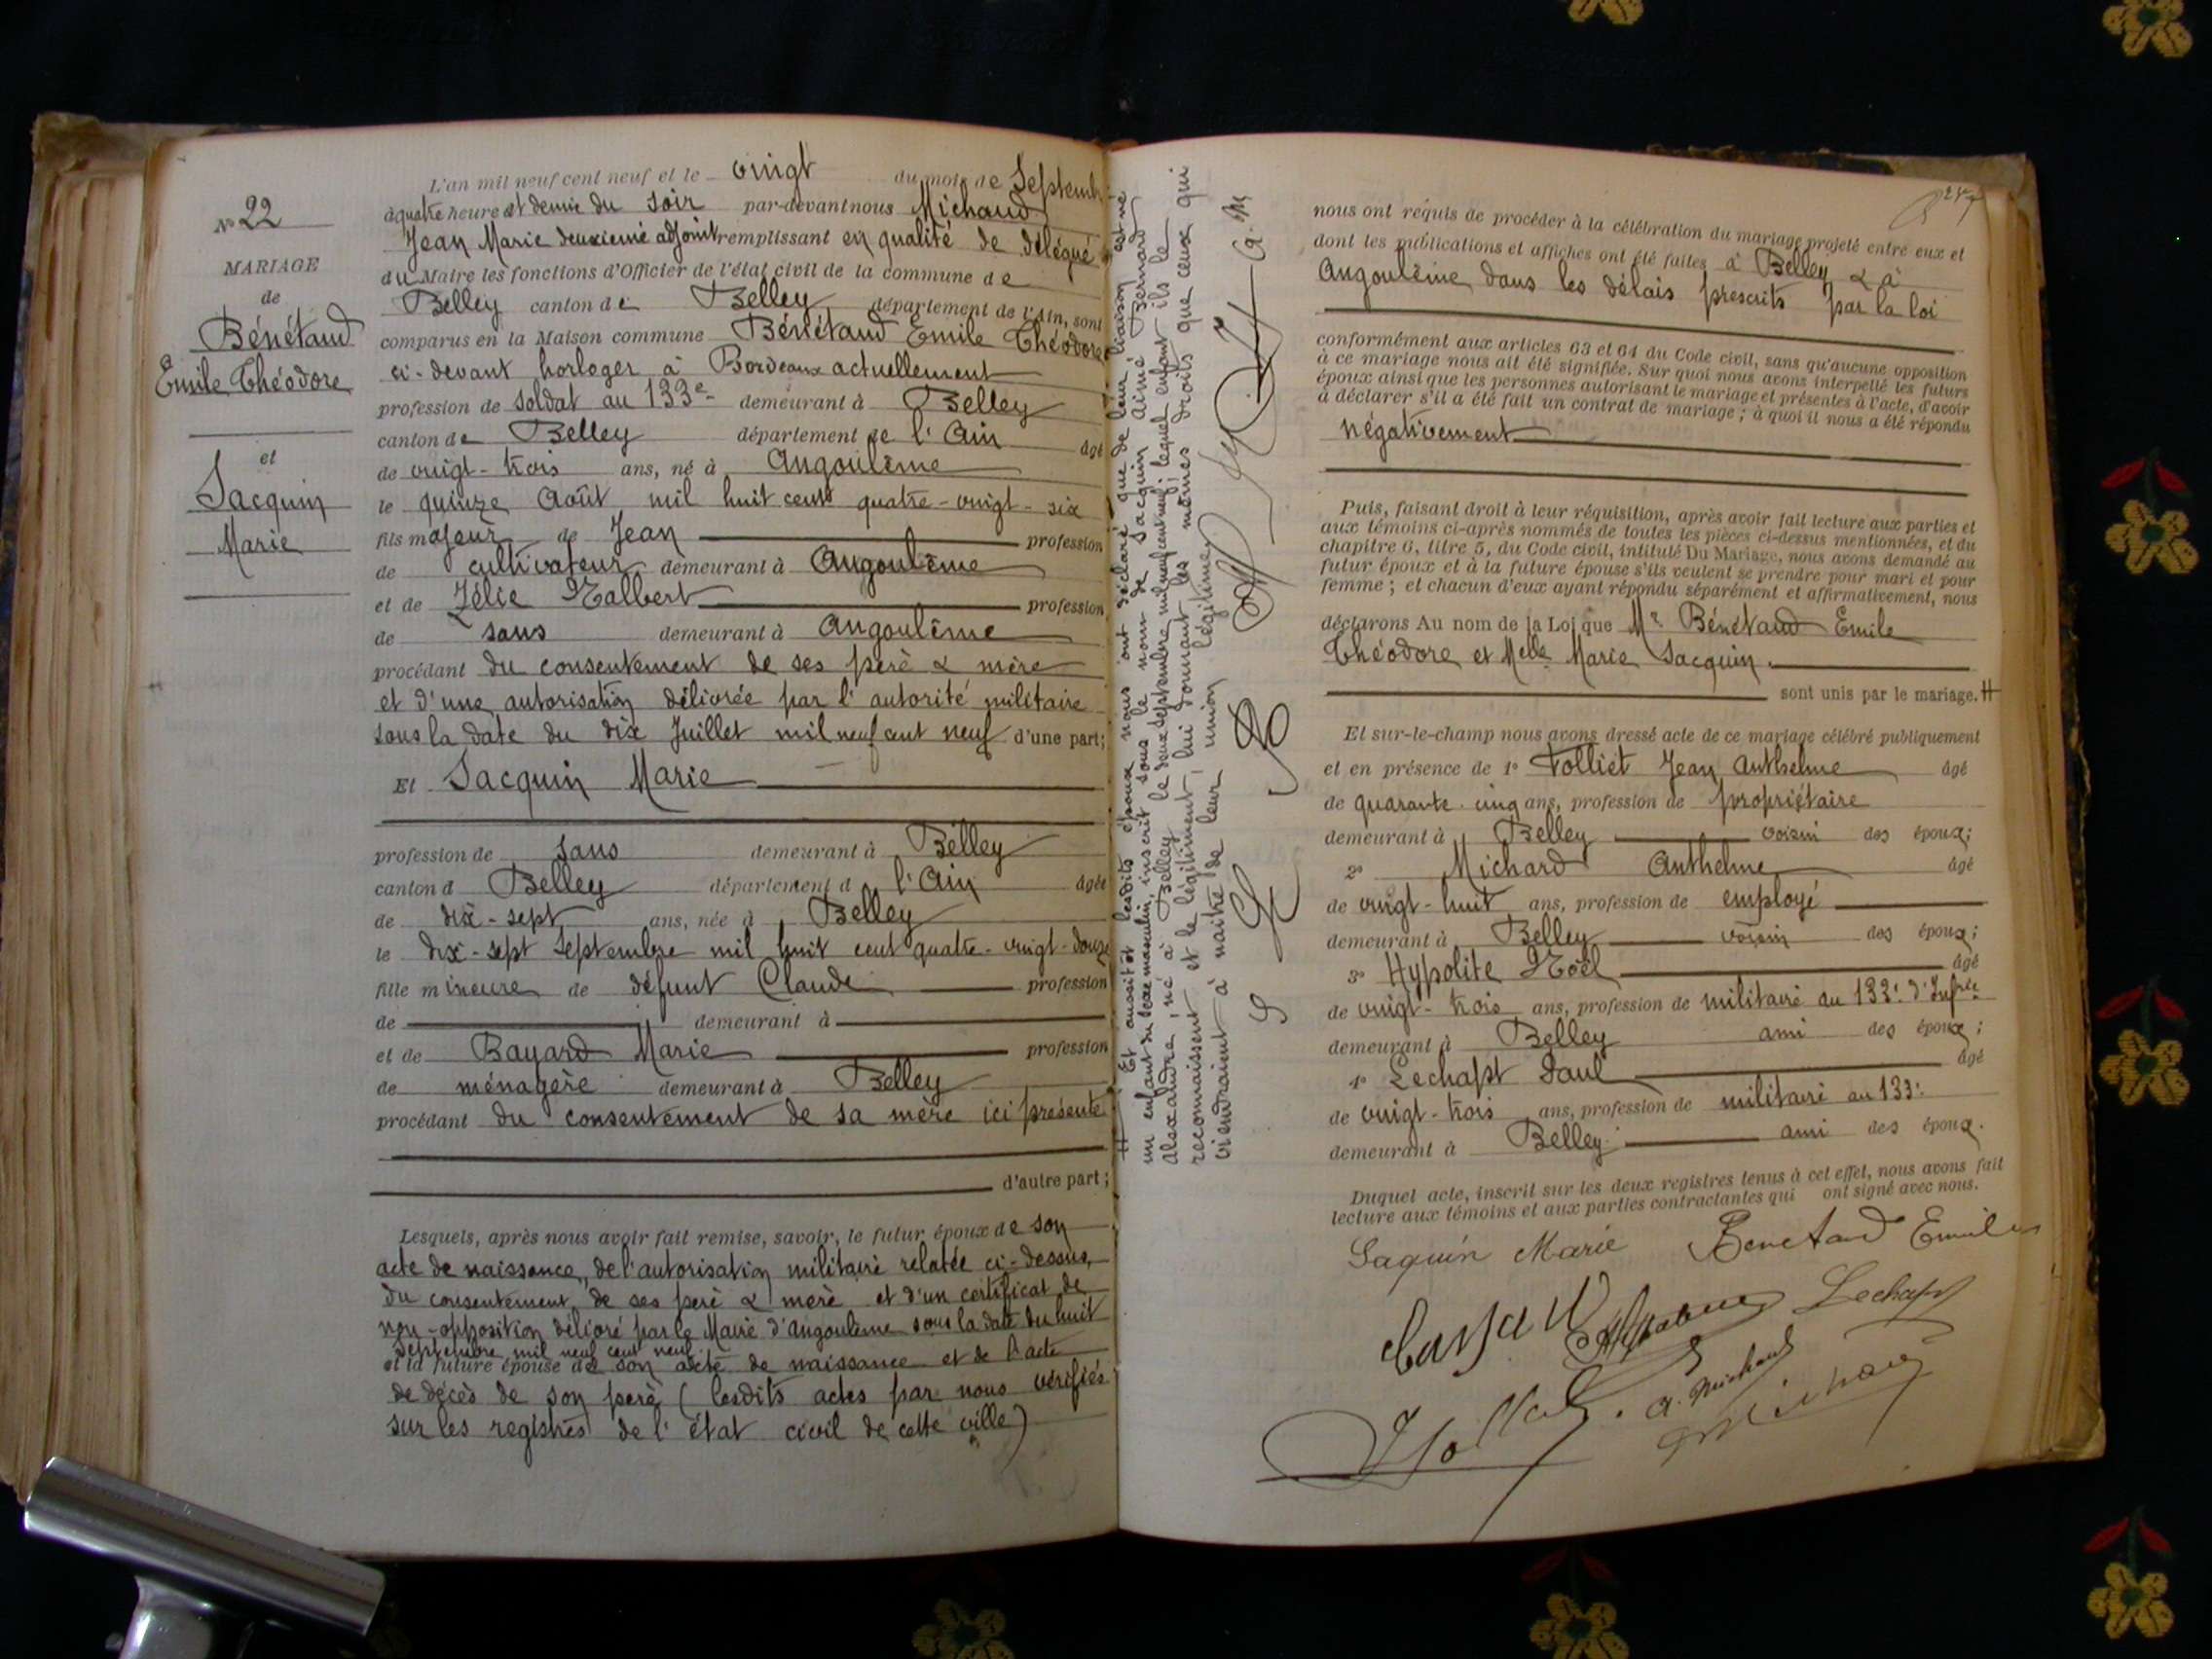 N° 22
MARIAGE
de
Bénétaud
Emile Théodore
et
Jacquin
Marie
L'an mil neuf cent neuf et le vingt du mois de Septembre
à quatre heure et demie du soir par-devant nous Michaud
Jean Marie deuxième adjoint remplissant en qualité de délégué
du Maire les fonctions d'Officier de l'état civil de la commune de
Belley canton de Belley département de l'Ain, sont
comparus en la Maison commune Bénétaud Emile Théodore
ci-devant horloger à Bordeaux actuellement
profession de soldat au 133e demeurant à Belley
canton de Belley département de l'Ain âgé
de vingt-trois ans, né à Angoulême
le quinze Août mil huit cent quatre-vingt-six
fils majeur de Jean profession
de cultivateur demeurant à Angoulême
et de Zélie Nalbert profession
de sans demeurant à Angoulême
procédant du consentement de ses père & mère
et d'une autorisation délivrée par l'autorité militaire
sous la date du dix Juillet mil neuf cent neuf d'une part;
Et Jacquin Marie
profession de sans demeurant à Belley
canton d Belley département d l'Ain âgée
de dix-sept ans, née à Belley
le dix-sept Septembre mil huit cent quatre-vingt-douze
fille mineure de défunt Claude profession
de demeurant à
et de Bayard Marie profession
de ménagère demeurant à Belley
procédant du consentement de sa mère ici présente
d'autre part;
Lesquels, après nous avoir fait remise, savoir, le futur époux de son
acte de naissance, de l'autorisation militaire relatée ci-dessus,
du consentement de ses père & mère et d'un certificat de
non-opposition délivré par le Maire d'Angoulême sous la date du huit
Septembre mil neuf cent neuf
et la future épouse de son acte de naissance et de l'acte
de décès de son père (lesdits actes par nous vérifiés
sur les registres de l'état civil de cette ville)
# Et aussitôt lesdits époux nous ont déclaré que de leur liaison est né
un enfant du sexe masculin, inscrit sous le nom de Jacquin Aimé Bernard
Alexandre, né à Belley le deux Septembre mil neuf cent neuf, lequel enfant ils le
reconnaissent et le légitiment, lui donnant les mêmes droits que ceux qui
viendraient à naître de leur union légitime.
nous ont requis de procéder à la célébration du mariage projeté entre eux et
dont les publications et affiches ont été faites à Belley & à
Angoulême dans les délais prescrits par la loi
conformément aux articles 63 et 64 du Code civil, sans qu'aucune opposition
à ce mariage nous ait été signifiée. Sur quoi nous avons interpellé les futurs
époux ainsi que les personnes autorisant le mariage et présentes à l'acte, d'avoir
à déclarer s'il a été fait un contrat de mariage; à quoi il nous a été répondu
négativement
Puis, faisant droit à leur réquisition, après avoir fait lecture aux parties et
aux témoins ci-après nommés de toutes les pièces ci-dessus mentionnées, et du
chapitre 6, titre 5, du Code civil, intitulé Du Mariage, nous avons demandé au
futur époux et à la future épouse s'ils veulent se prendre pour mari et pour
femme; et chacun d'eux ayant répondu séparément et affirmativement, nous
déclarons Au nom de la Loi que Mr Bénétaud Emile
Théodore et Melle Marie Jacquin
sont unis par le mariage. #
Et sur-le-champ nous avons dressé acte de ce mariage célébré publiquement
et en présence de 1° Folliet Jean Anthelme âgé
de quarante-cinq ans, profession de propriétaire
demeurant à Belley voisin des époux;
2° Michard Anthelme âgé
de vingt-huit ans, profession de employé
demeurant à Belley voisin des époux;
3° Hypolite Noël âgé
de vingt-trois ans, profession de militaire au 133e d'Infrie
demeurant à Belley ami des époux;
4° Lechapt Paul âgé
de vingt-trois ans, profession de militaire au 133e
demeurant à Belley ami des époux.
Duquel acte, inscrit sur les deux registres tenus à cet effet, nous avons fait
lecture aux témoins et aux parties contractantes qui ont signé avec nous.
Jaquin Marie Benetaud Emile
Lechapt